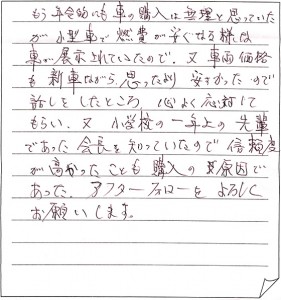 もう年令的にも車の購入は無理と思っていた
が小型車で燃費が安くなる様な
車が展示されていたので、又車両価格
も新車ながら思ったより安すかったので
話しをしたところ 心よく応対して
もらい、又小学校の一年上の先輩
であった会長を知っていたので信頼度
が高かったことも購入の原因で
あった。アフターフォローをよろしく
お願いします。